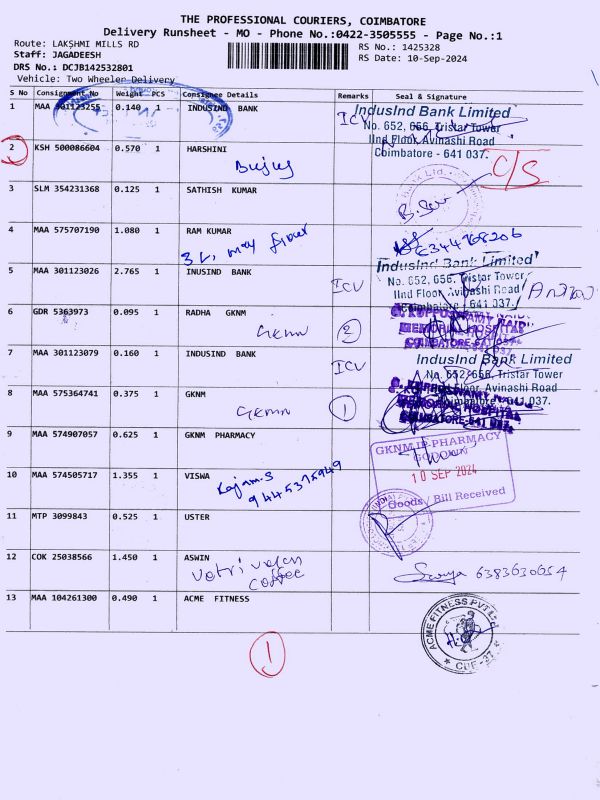 THE PROFESSIONAL COURIERS, COIMBATORE
Delivery Runsheet - MO - Phone No.:0422-3505555 - Page No.:1
Route: LAKSHMI MILLS RD
RS No.: 1425328
Staff: JAGADEESH
RS Date: 10-Sep-2024
DRS No.: DCJB142532801
Vehicle: Two Wheeler Delivery
S No Consignment No Weight PCS Consignee Details Remarks Seal & Signature
1 MAA 301123255 0.140 1 INDUSIND BANK ICV
IndusInd Bank Limited
No. 652, 656, Tristar Tower
IInd Floor, Avinashi Road
Coimbatore - 641 037.
2 KSH 500086604 0.570 1 HARSHINI
C/S
3 SLM 354231368 0.125 1 SATHISH KUMAR
4 MAA 575707190 1.080 1 RAM KUMAR
5 MAA 301123026 2.765 1 INUSIND BANK ICV
IndusInd Bank Limited
No. 652, 656, Tristar Tower,
IInd Floor, Avinashi Road
- 641 037.
6 GDR 5363973 0.095 1 RADHA GKNM
GKNM 2
G. KUPPUSWAMY NAIDU
MEMORIAL HOSPITAL
COIMBATORE-641 037.
7 MAA 301123079 0.160 1 INDUSIND BANK ICV
IndusInd Bank Limited
No. 652, 656, Tristar Tower
Floor, Avinashi Road
Coimbatore - 641 037.
8 MAA 575364741 0.375 1 GKNM
GKNM 1
G. KUPPUSWAMY NAIDU
MEMORIAL HOSPITAL
COIMBATORE-641 037.
9 MAA 574907057 0.625 1 GKNM PHARMACY
GKNM IP-PHARMACY
GODOWN
10 SEP 2024
Goods / Bill Received
10 MAA 574505717 1.355 1 VISWA
Rajam.S
9445375949
11 MTP 3099843 0.525 1 USTER
12 COK 25038566 1.450 1 ASWIN
coffee
Surya 6383630654
13 MAA 104261300 0.490 1 ACME FITNESS
ACME FITNESS PVT Ltd
CBE-37
1